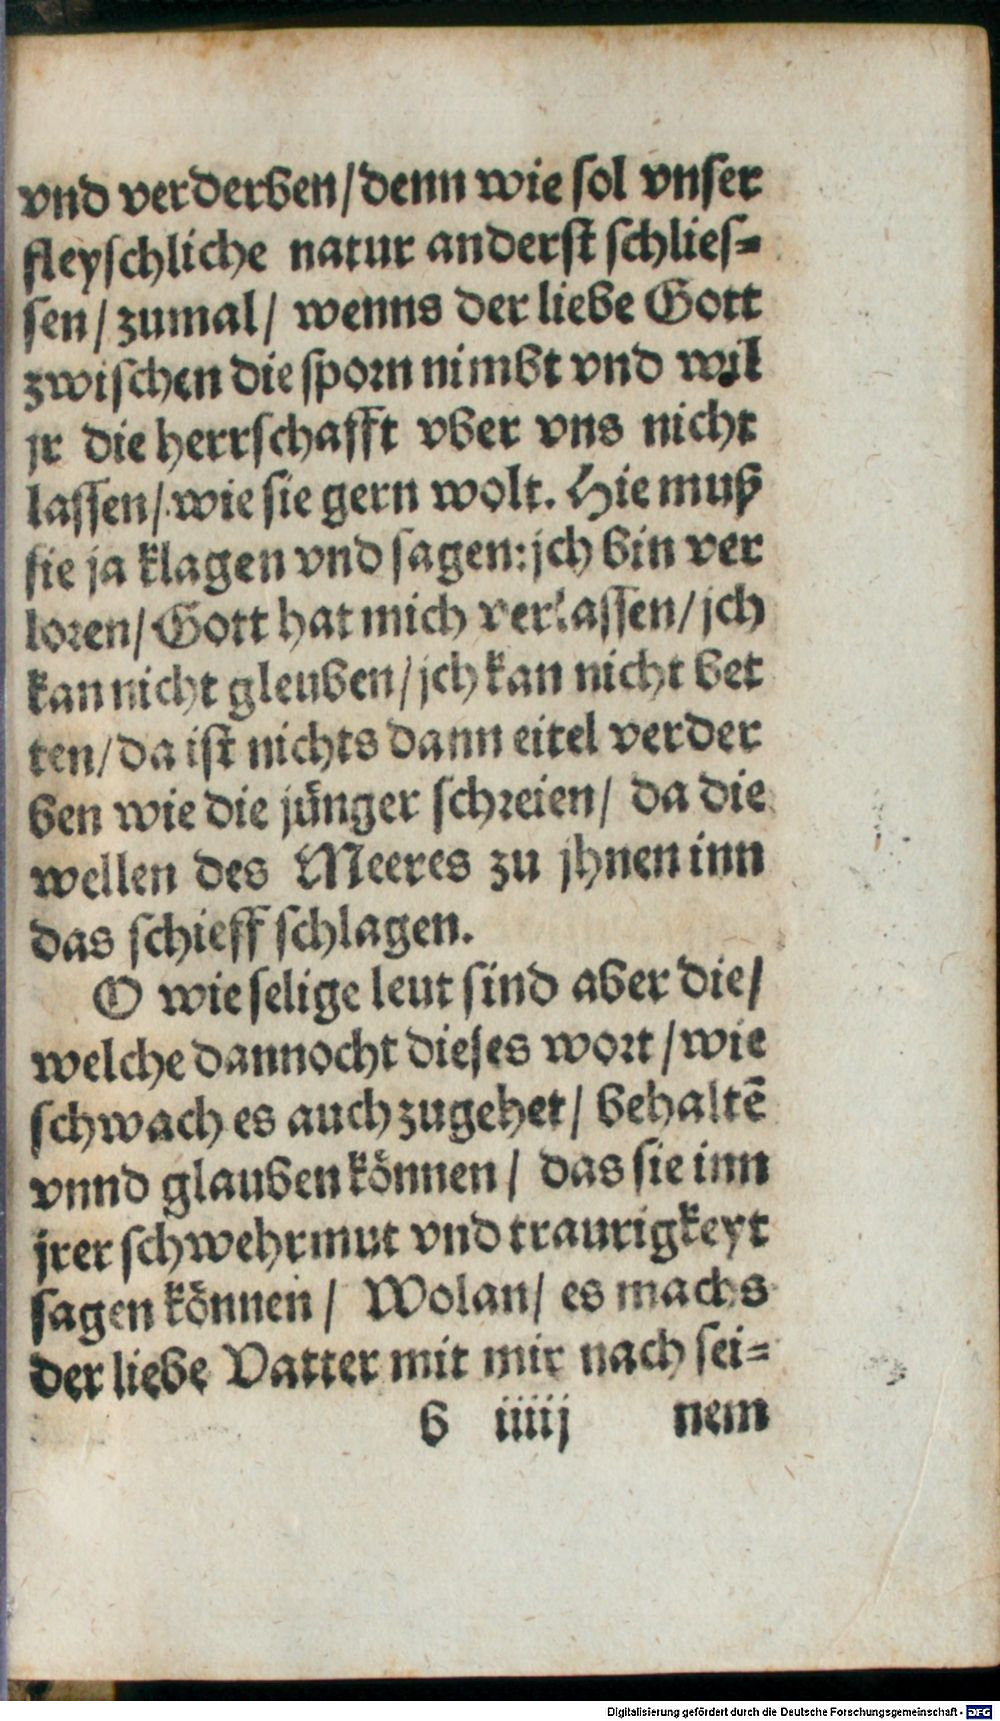 vnd verderben/denn wie sol vnser
fleyschliche natur anderst schlies=
sen/ zumal/ wenns der liebe Gott
zwischen die sporn nimbt vnd wil
jr die herrschafft vber vns nicht
lassen/ wie sie gern wolt. Hie muß
sie ja klagen vnd sagen: jch bin ver
loren/ Gott hat mich verlassen/ jch
kan nicht gleuben/ jch kan nicht bet
ten/ da ist nichts dann eitel verder
ben wie die jünger schreien/ da die
wellen des Meeres zu jhnen inn
das schieff schlagen.
O wie selige leut sind aber die/
welche dannocht dieses wort/ wie
schwach es auch zugehet/ behaltē
vnnd glauben können/ das sie inn
jrer schwehrmut vnd traurigkeyt
sagen können/ Wolan/ es machs
der liebe Vatter mit mir nach sei=
b iiiij nem
Digitalisierung gefördert durch die Deutsche Forschungsgemeinschaft - DFG